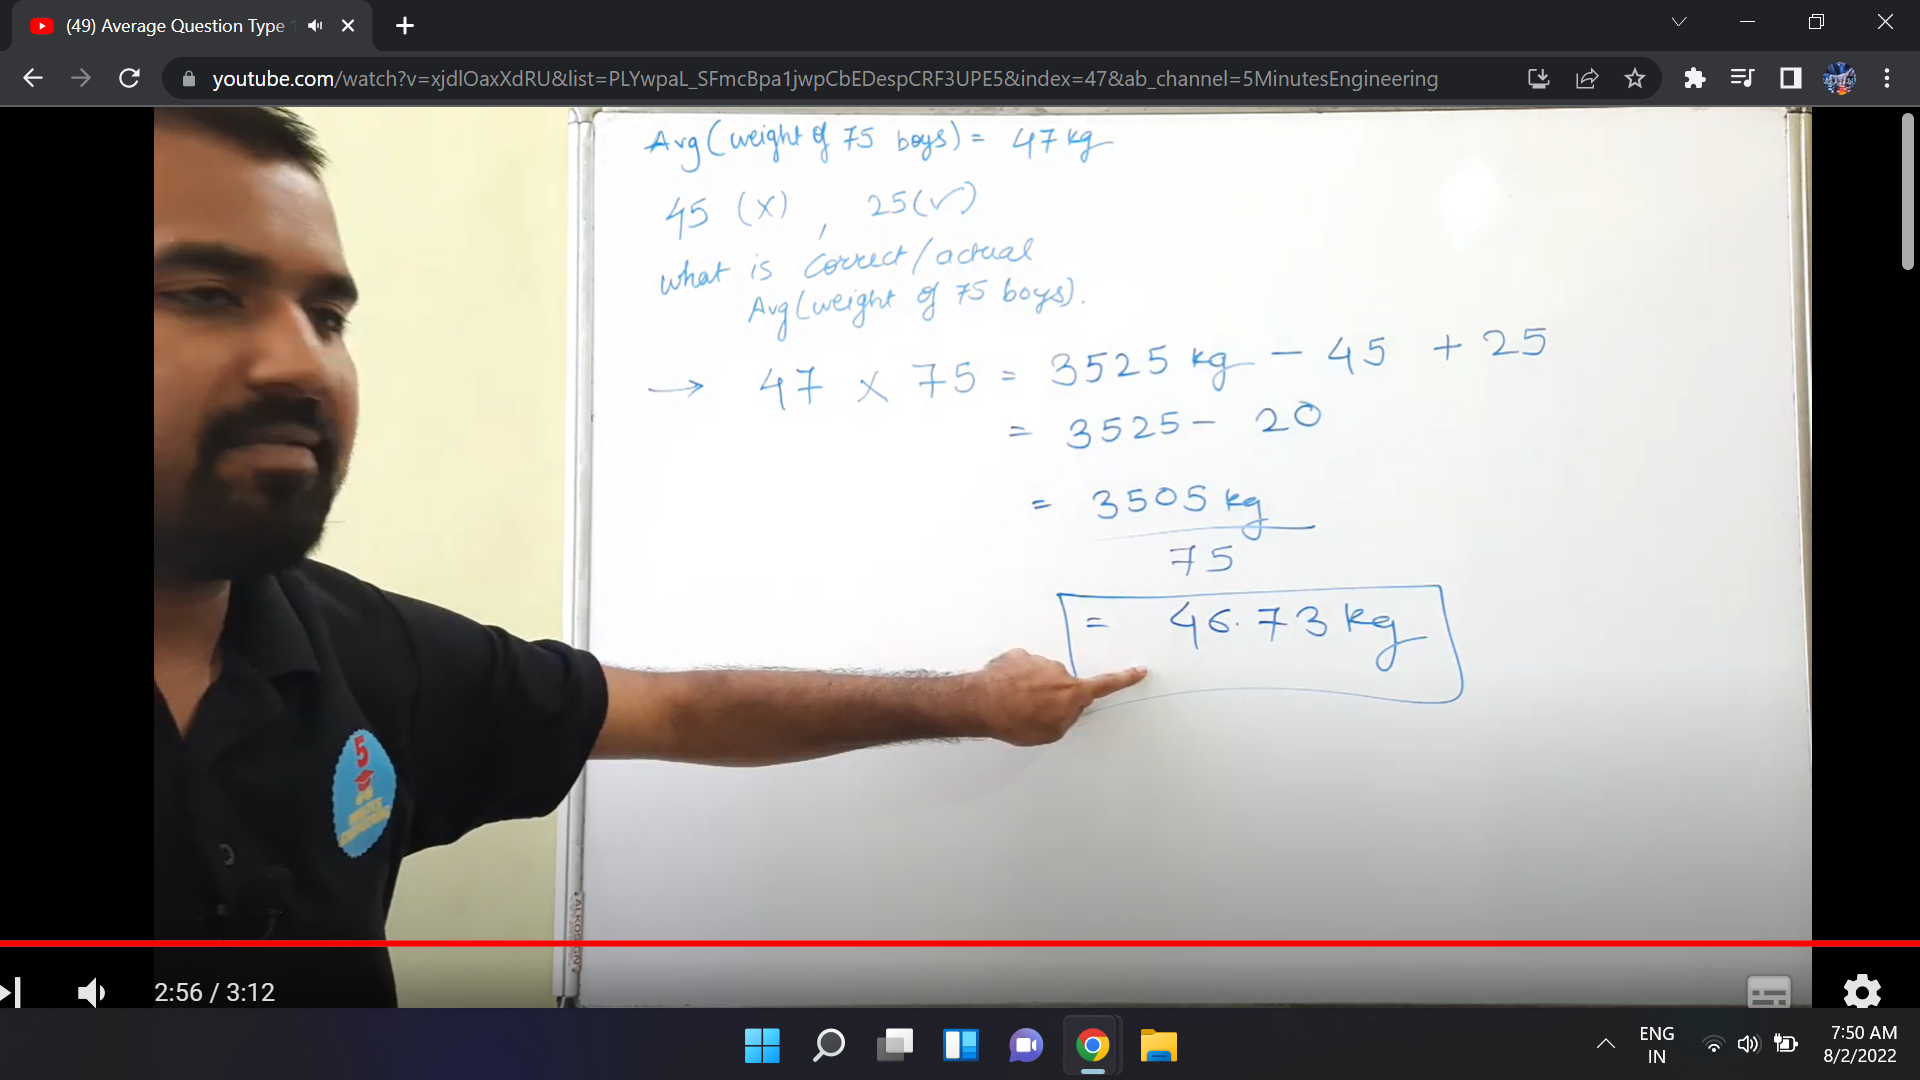 (49) Average Question Type
youtube.com/watch?v=xjdlOaxXdRU&list=PLYwpaL_SFmcBpa1jwpCbEDespCRF3UPE5&index=47&ab_channel=5MinutesEngineering
Avg (weight of 75 boys) = 47 kg
45 (x) , 25 (✓)
what is correct/actual
Avg (weight of 75 boys).
→ 47 x 75 = 3525 kg - 45 + 25
= 3525 - 20
= 3505 kg
75
= 46.73 kg
5
MINUTES
ENGINEERING
ALKOSIGN
2:56 / 3:12
ENG
IN
7:50 AM
8/2/2022